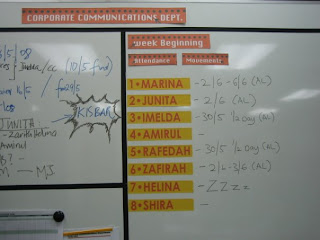 CORPORATE COMMUNICATIONS DEPT.
Week Beginning
Attendance Movements
1 • MARINA - 2/6 - 6/6 (AL)
2 • JUNITA - 2/6 (AL)
3 • IMELDA - 30/5 ½ Day (AL)
4 • AMIRUL -
5 • RAFEDAH - 30/5 ½ Day (AL)
6 • ZAFIRAH - 2/6 - 3/6 (AL)
7 • HELINA - ZZZz
8 • SHIRA -
/5/08
/cc (10/5 fwd)
16/5 / 29/5
KISBAR
JUNITA
MJ